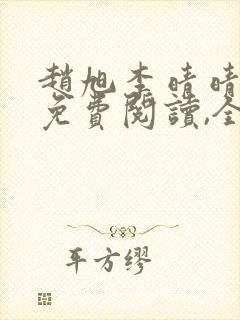 趙旭李晴晴
免費閱讀,全
平方繆